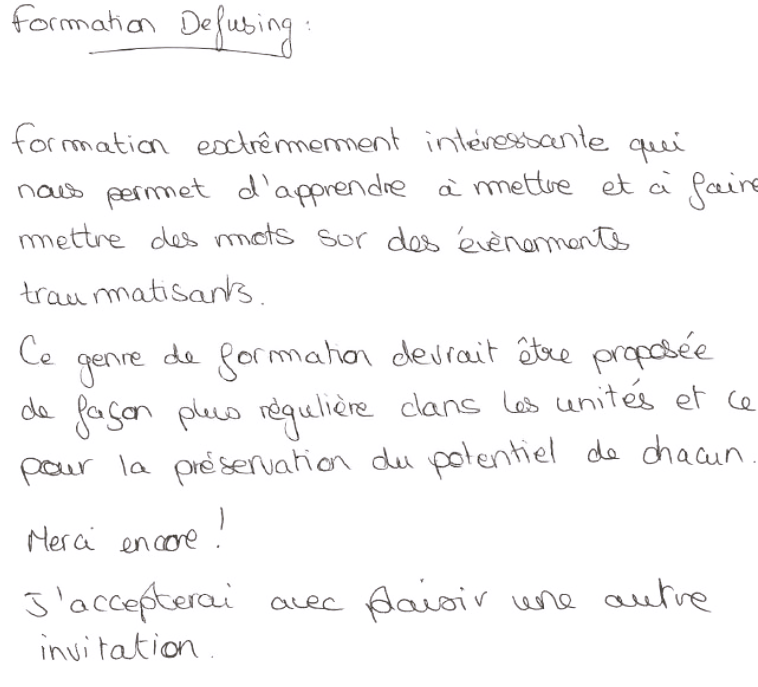 Formation Defusing :
formation extrêmement intéressante qui
nous permet d'apprendre à mettre et à faire
mettre des mots sur des évènements
traumatisants.
Ce genre de formation devrait être proposée
de façon plus régulière dans les unités et ce
pour la préservation du potentiel de chacun.
Merci encore !
J'accepterai avec plaisir une autre
invitation.